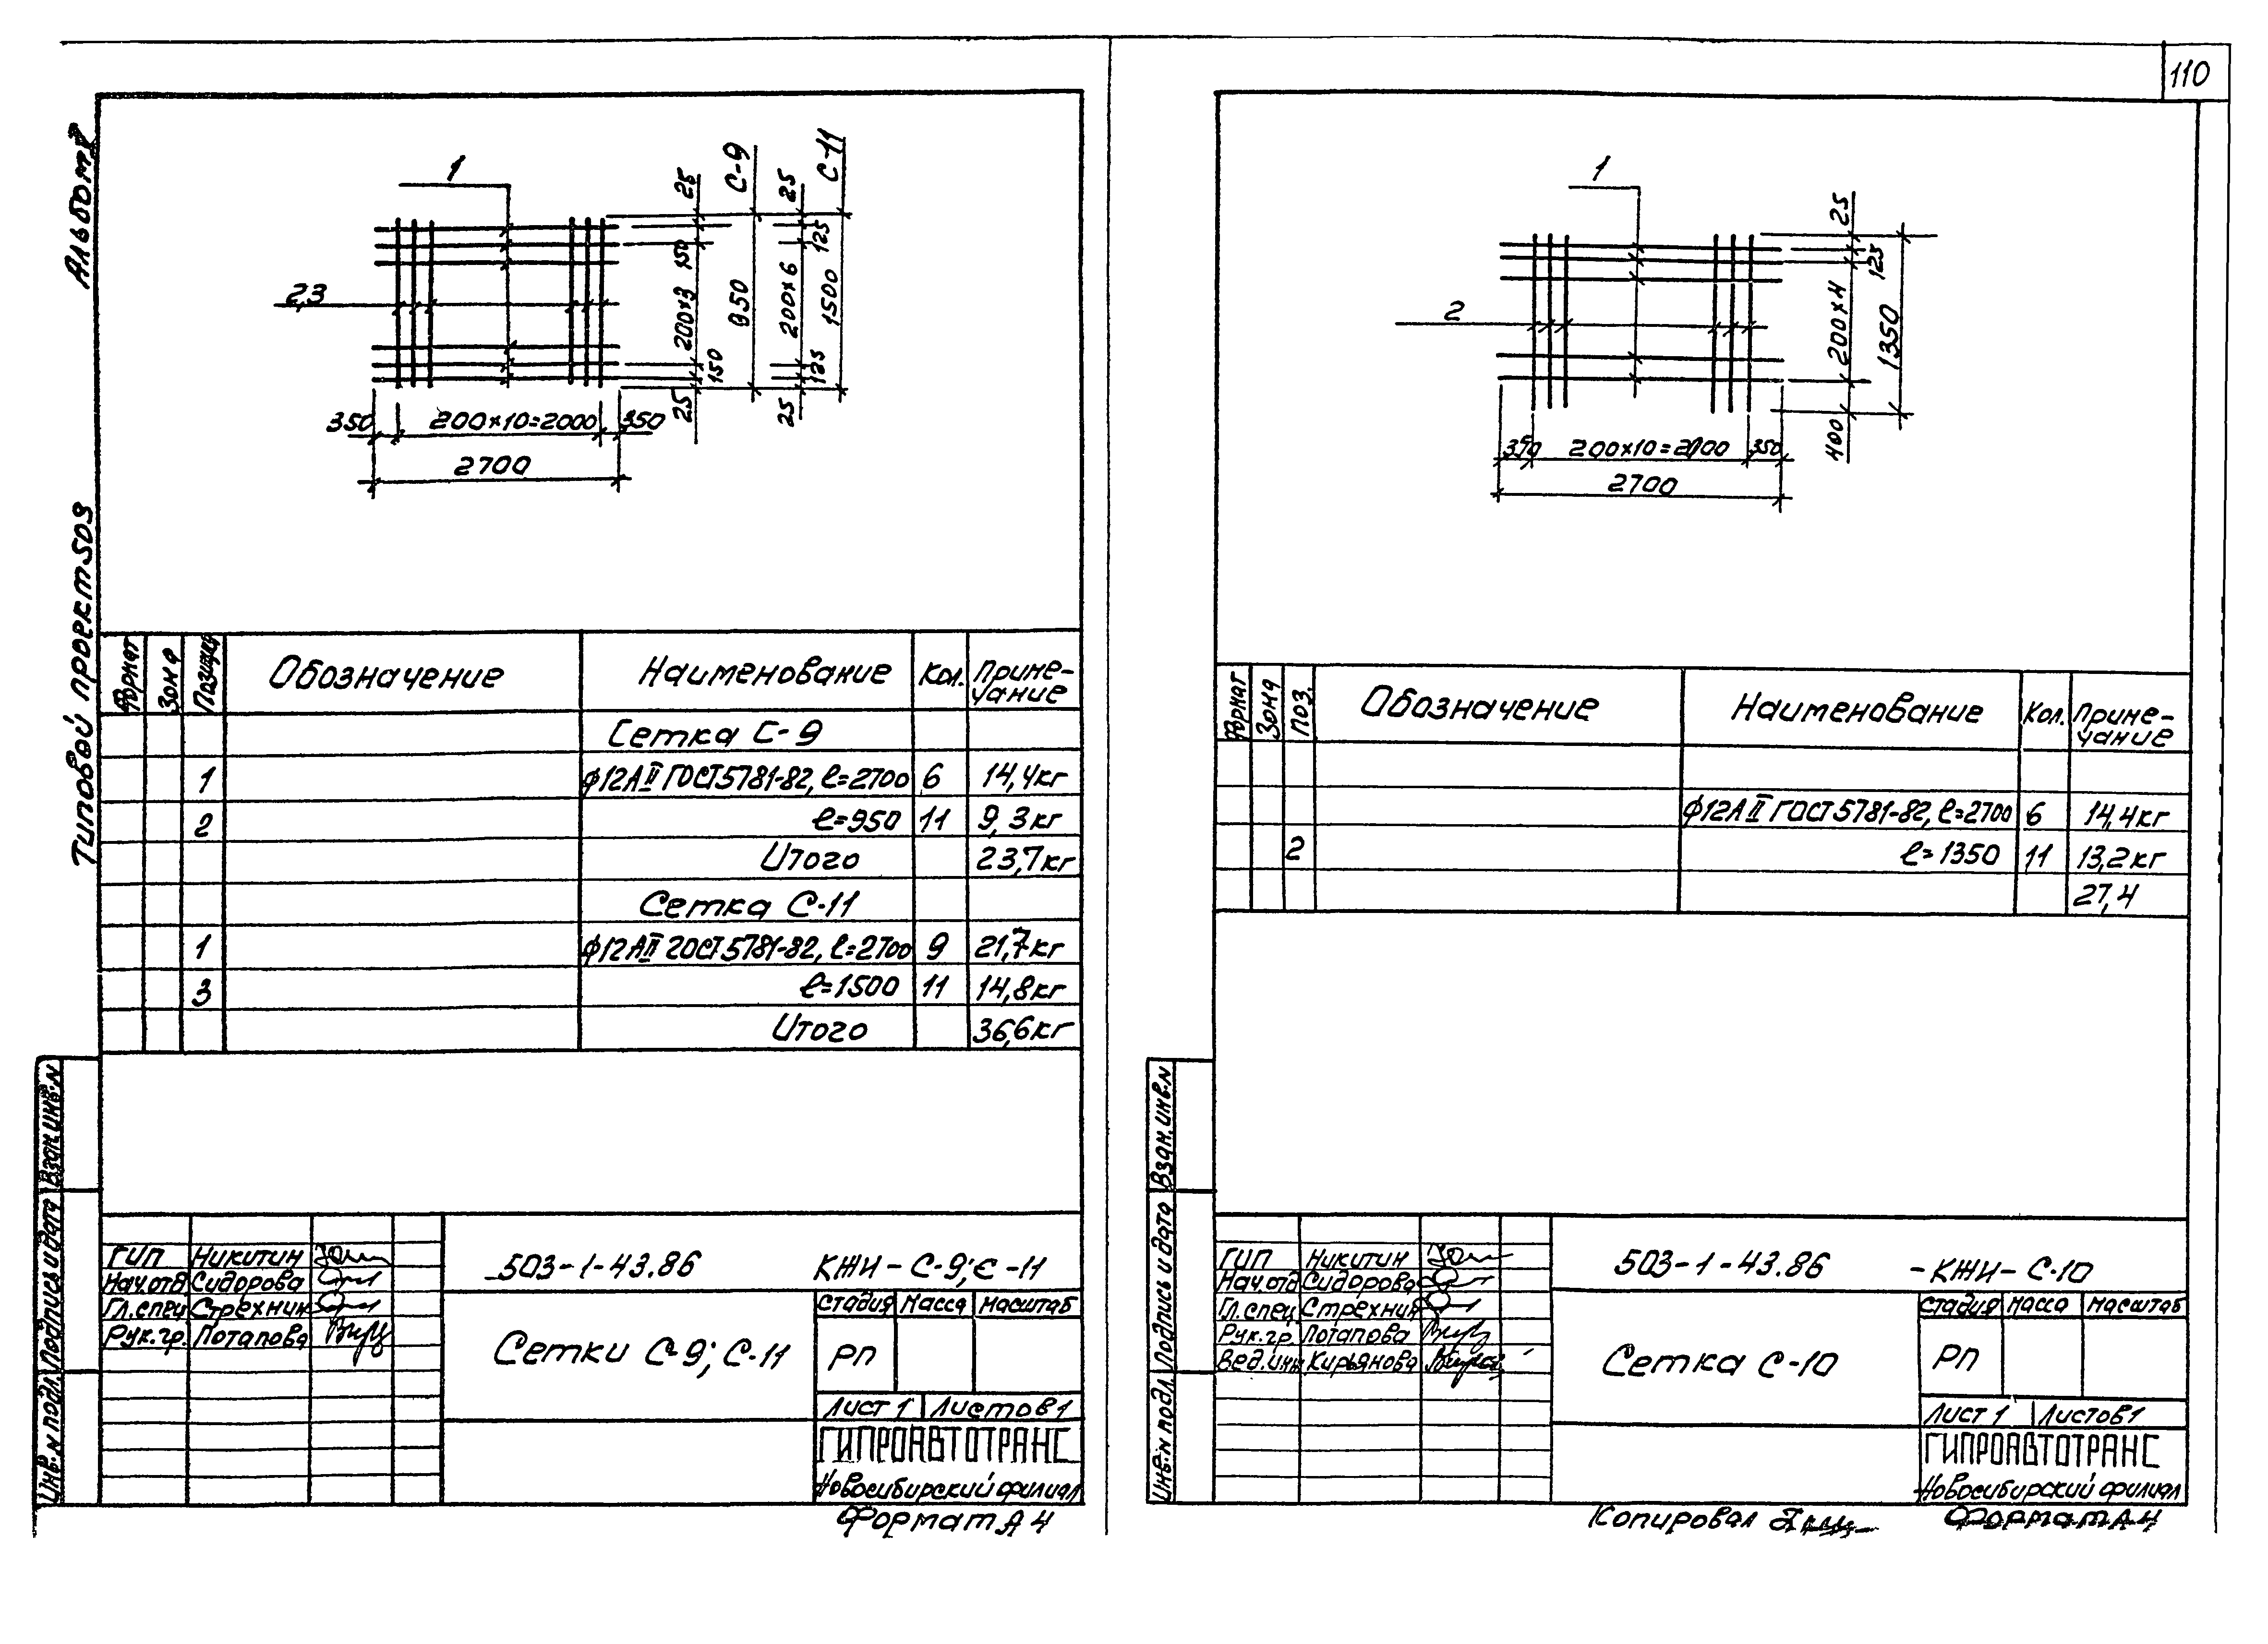 110
Альбом V
Типовой проект 503
1
2,3
25
150
200х3
150
25
С-9
950
25
125
200х6
125
25
С-11
1500
350 200х10=2000 350
2700
Формат Зона Позиция Обозначение Наименование Кол. Приме-
чание
Сетка С-9
1 ф12АII ГОСТ 5781-82, ℓ=2700 6 14,4кг
2 ℓ=950 11 9,3кг
Итого 23,7кг
Сетка С-11
1 ф12АII ГОСТ 5781-82, ℓ=2700 9 21,7кг
3 ℓ=1500 11 14,8кг
Итого 36,6кг
Взам.инв.N
Подпись и дата
Инв.N подл.
ГИП Никитин
Нач.отд. Сидорова
Гл.спец. Стрехнин
Рук.гр. Потапова
503-1-43.86 КЖИ-С-9; С-11
Сетки С-9; С-11
Стадия Масса Масштаб
РП
Лист 1 Листов 1
ГИПРОАВТОТРАНС
Новосибирский филиал
Формат А4
1
2
25
125
200х4
400
1350
350 200х10=2000 350
2700
Формат Зона Поз. Обозначение Наименование Кол. Приме-
чание
ф12АII ГОСТ 5781-82, ℓ=2700 6 14,4кг
2 ℓ=1350 11 13,2кг
27,4
Взам.инв.N
Подпись и дата
Инв.N подл.
ГИП Никитин
Нач.отд Сидорова
Гл.спец. Стрехнин
Рук.гр. Потапова
Вед.инж. Кирьянова
503-1-43.86 -КЖИ-С-10
Сетка С-10
Стадия Масса Масштаб
РП
Лист 1 Листов 1
ГИПРОАВТОТРАНС
Новосибирский филиал
Копировал Формат А4